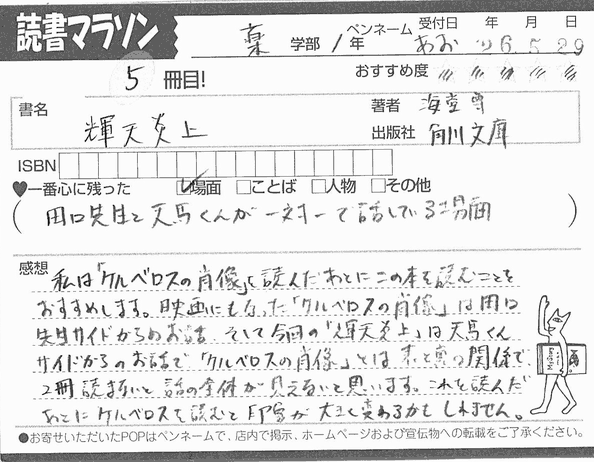 読書マラソン
薬 学部 1年 ペンネーム あお 受付日 '26年5月29日
5 冊目! おすすめ度
書名 輝天炎上
著者 海堂尊
出版社 角川文庫
ISBN
♥一番心に残った ☑場面 □ことば □人物 □その他
(田口先生と天馬くんが一対一で話している場面)
感想 私は「ケルベロスの肖像」を読んだあとにこの本を読むことを
おすすめします。映画にもなった「ケルベロスの肖像」は田口
先生サイドからのお話 そして今回の「輝天炎上」は天馬くん
サイドからのお話で「ケルベロスの肖像」とは 表と裏の関係で、
2冊読まないと話の全体が見えないと思います。これを読んだ
あとにケルベロスを読むと印象が大きく変わるかもしれません。
●お寄せいただいたPOPはペンネームで、店内で掲示、ホームページおよび宣伝物への転載をご了承ください。